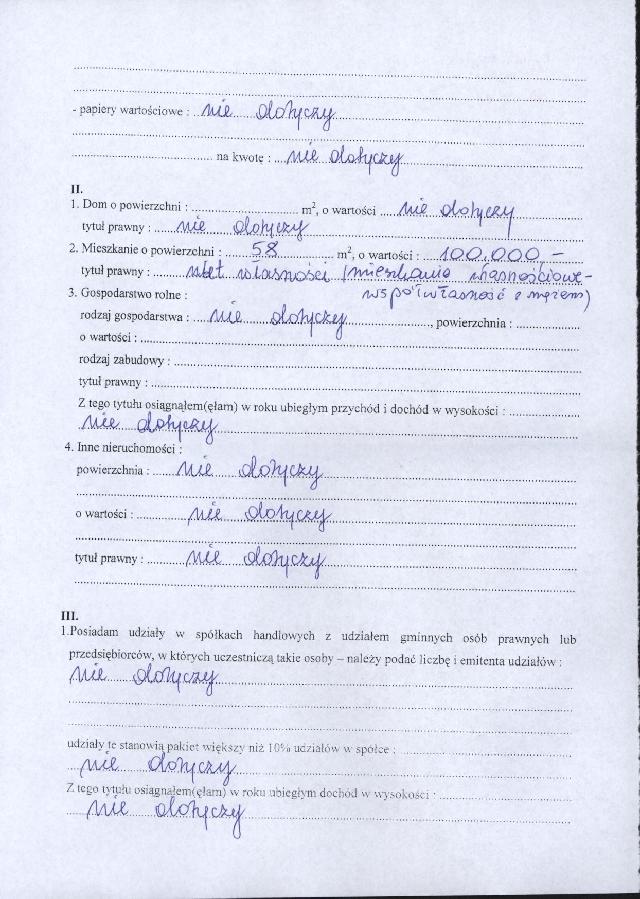 - papiery wartościowe : nie dotyczy
na kwotę : nie dotyczy
II.
1. Dom o powierzchni : m², o wartości nie dotyczy
tytuł prawny : nie dotyczy
2. Mieszkanie o powierzchni : 58 m², o wartości : 100.000,-
tytuł prawny : własności (mieszkanie własnościowe-
3. Gospodarstwo rolne : współwłasność z mężem)
rodzaj gospodarstwa : nie dotyczy, powierzchnia :
o wartości :
rodzaj zabudowy :
tytuł prawny :
Z tego tytułu osiągnąłem(ęłam) w roku ubiegłym przychód i dochód w wysokości :
nie dotyczy
4. Inne nieruchomości :
powierzchnia : nie dotyczy
o wartości : nie dotyczy
tytuł prawny : nie dotyczy
III.
1.Posiadam udziały w spółkach handlowych z udziałem gminnych osób prawnych lub
przedsiębiorców, w których uczestniczą takie osoby – należy podać liczbę i emitenta udziałów :
nie dotyczy
udziały te stanowią pakiet większy niż 10% udziałów w spółce :
nie dotyczy
Z tego tytułu osiągnąłem(ęłam) w roku ubiegłym dochód w wysokości :
nie dotyczy